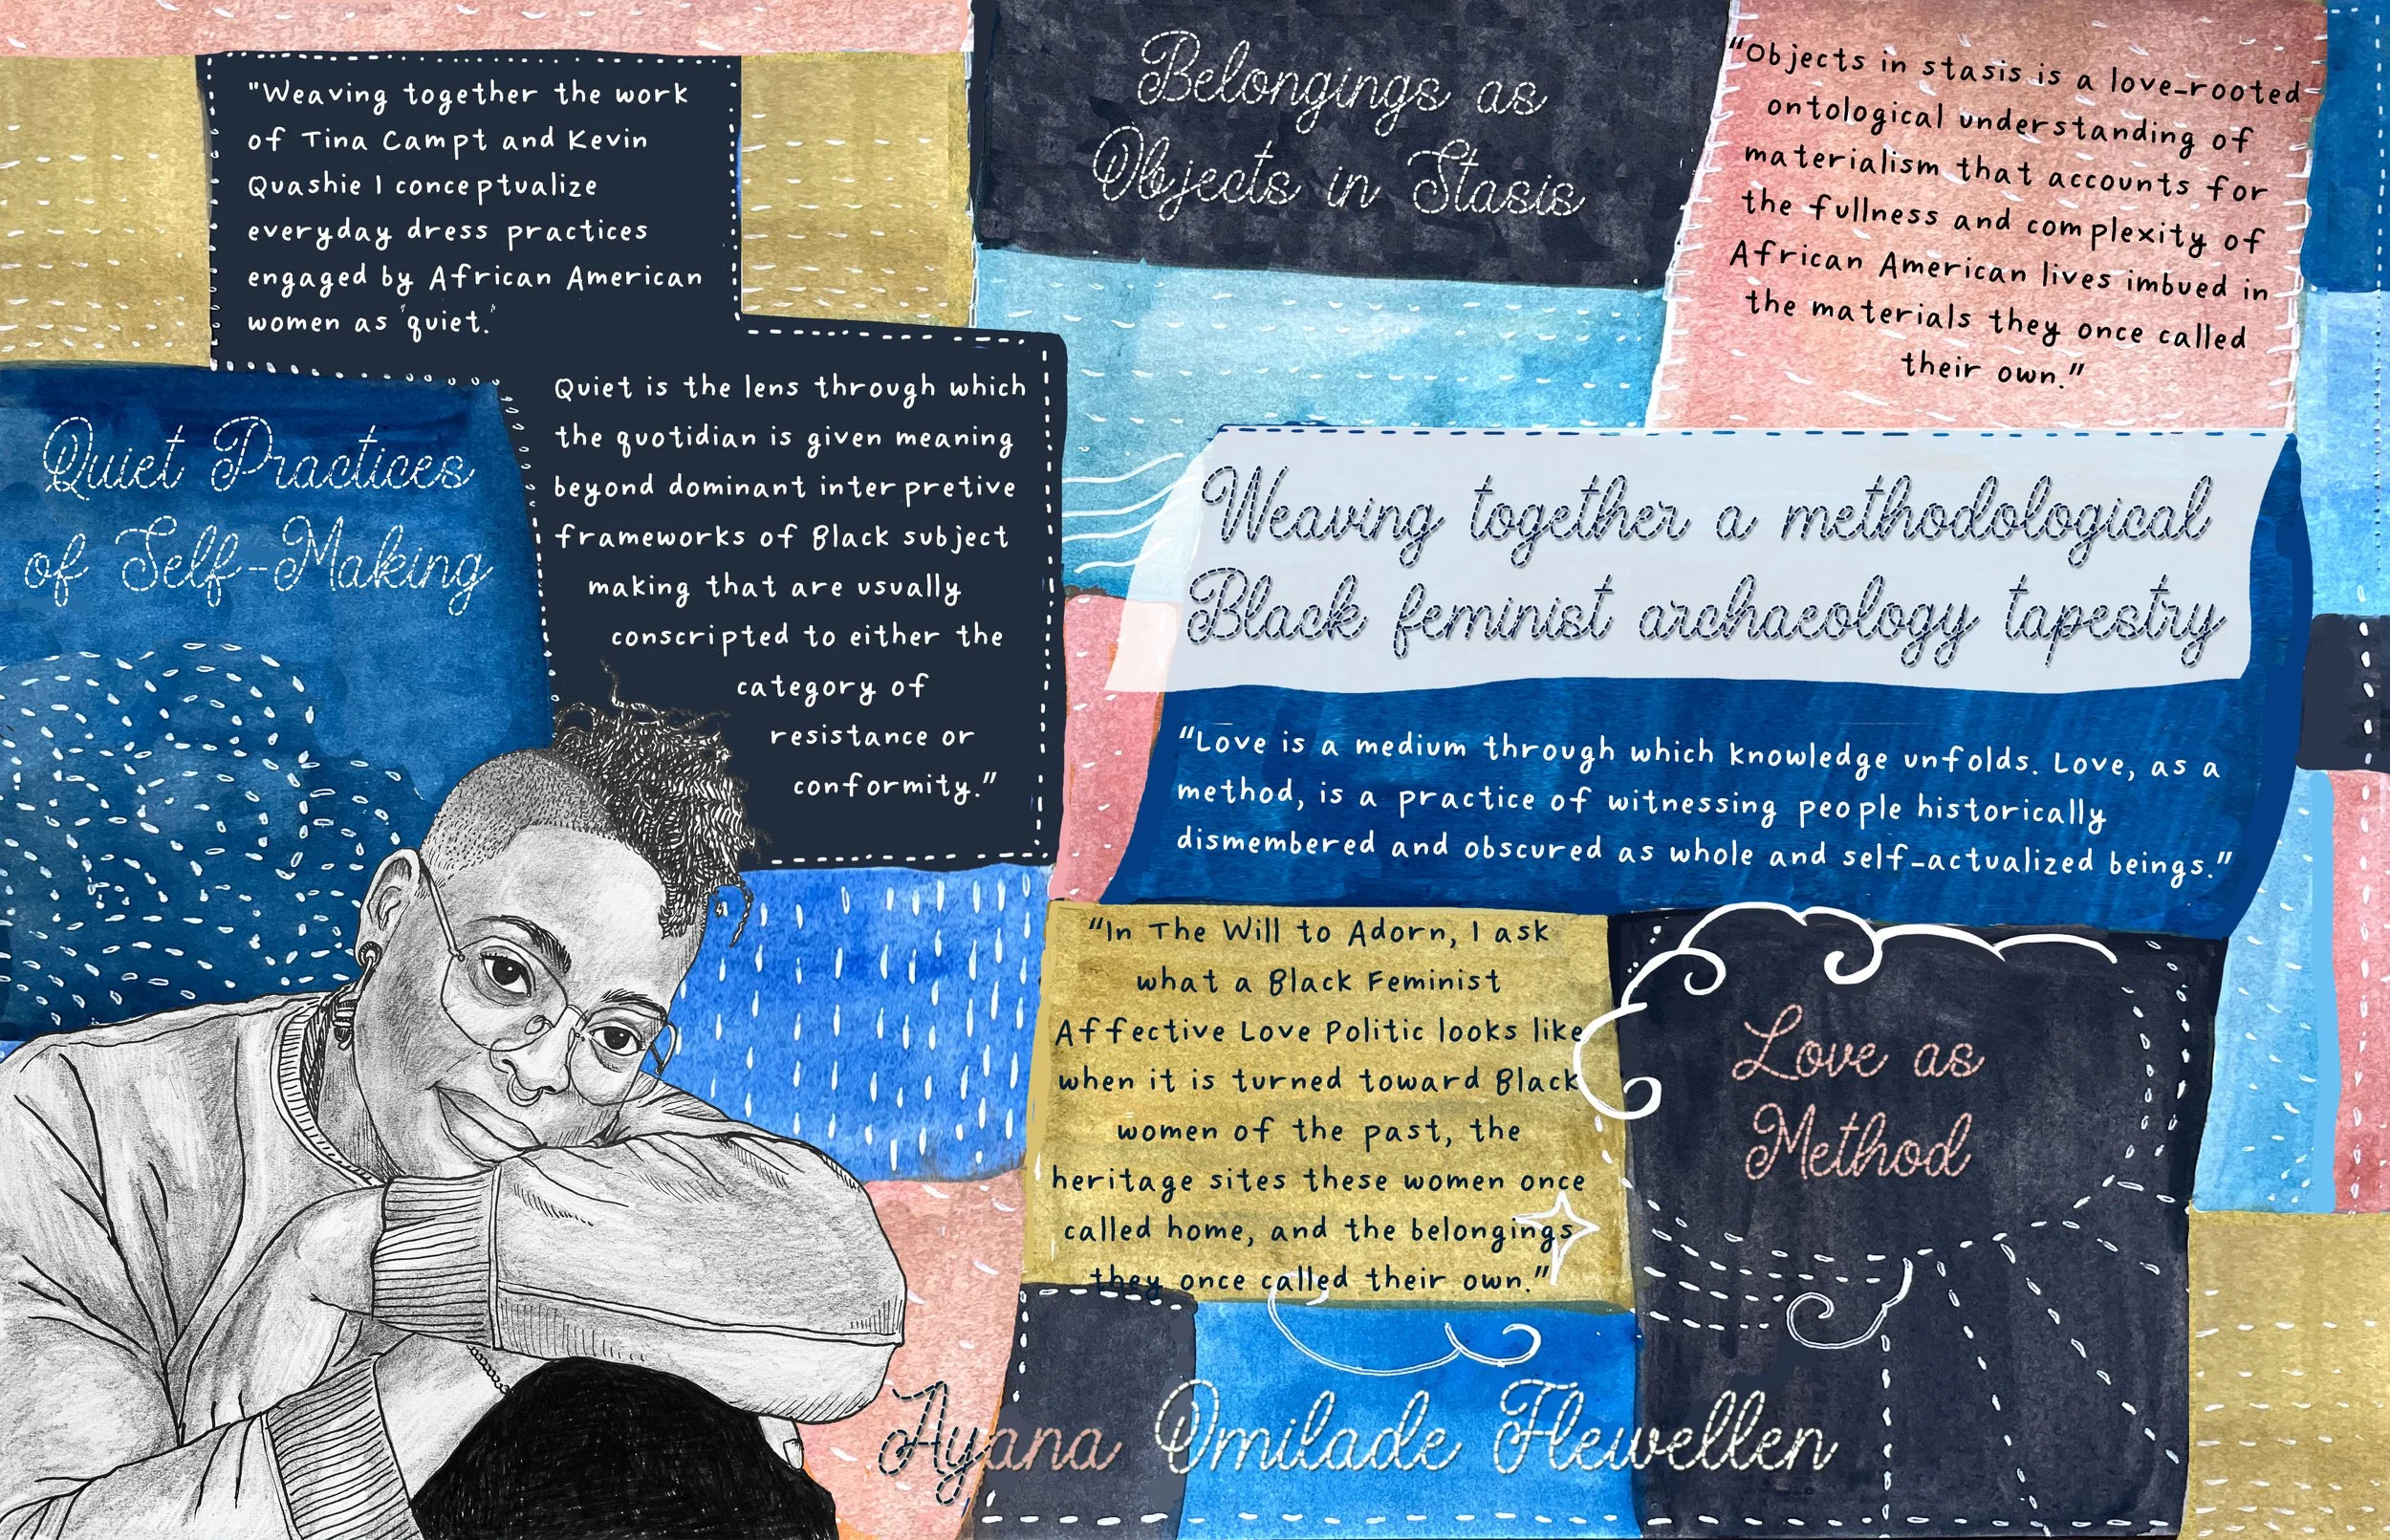 "Weaving together the work
of Tina Campt and Kevin
Quashie I conceptualize
everyday dress practices
engaged by African American
women as 'quiet.'
Quiet is the lens through which
the quotidian is given meaning
beyond dominant interpretive
frameworks of Black subject
making that are usually
conscripted to either the
category of
resistance or
conformity."
Quiet Practices
of Self-Making
Belongings as
Objects in Stasis
"Objects in stasis is a love-rooted
ontological understanding of
materialism that accounts for
the fullness and complexity of
African American lives imbued in
the materials they once called
their own."
Weaving together a methodological
Black feminist archaeology tapestry
"Love is a medium through which knowledge unfolds. Love, as a
method, is a practice of witnessing people historically
dismembered and obscured as whole and self-actualized beings."
"In The Will to Adorn, I ask
what a Black Feminist
Affective Love Politic looks like
when it is turned toward Black
women of the past, the
heritage sites these women once
called home, and the belongings
they once called their own."
Love as
Method
Ayana Omilade Flewellen